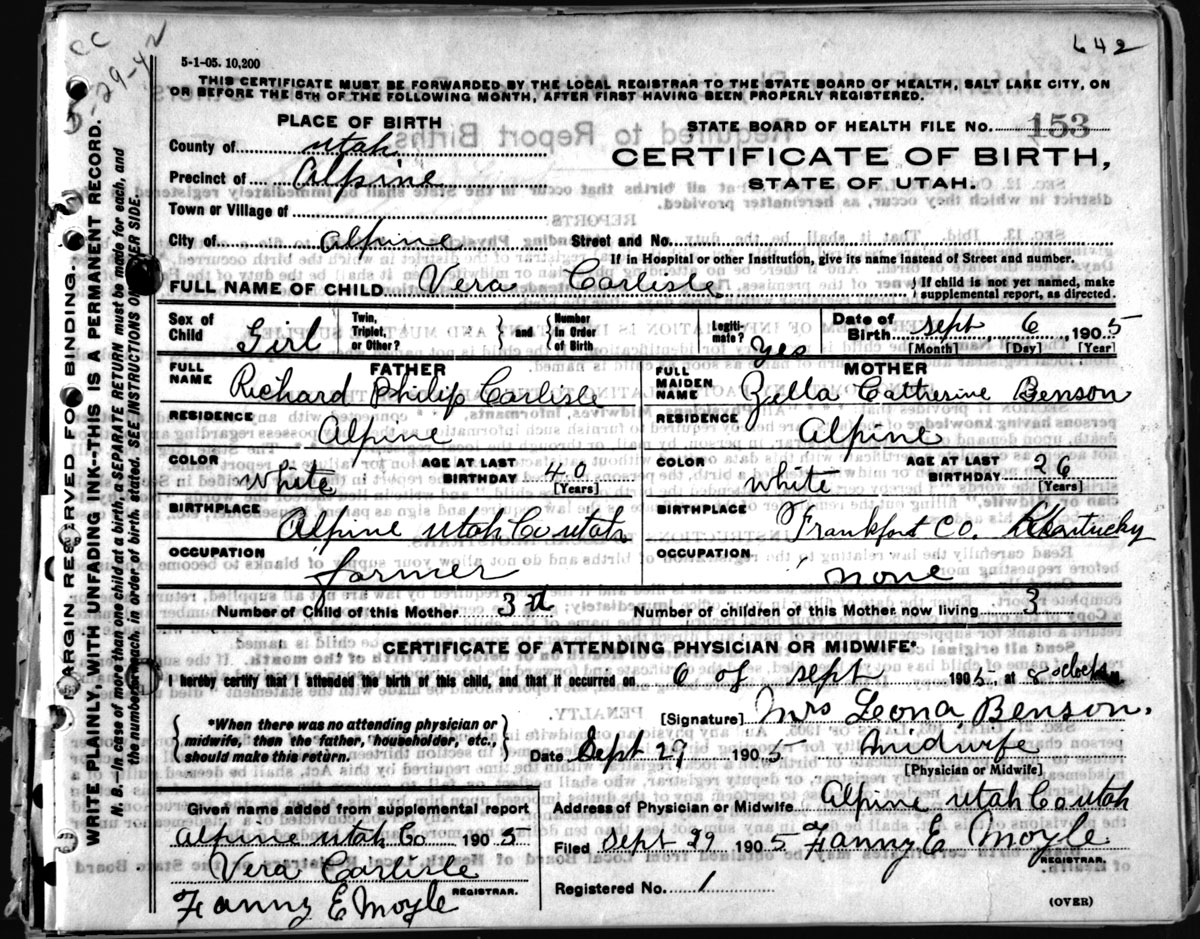 CC
5-29-42
642
5-1-05. 10,200
THIS CERTIFICATE MUST BE FORWARDED BY THE LOCAL REGISTRAR TO THE STATE BOARD OF HEALTH, SALT LAKE CITY, ON
OR BEFORE THE 5TH OF THE FOLLOWING MONTH, AFTER FIRST HAVING BEEN PROPERLY REGISTERED.
PLACE OF BIRTH
STATE BOARD OF HEALTH FILE NO. 153
County of Utah
CERTIFICATE OF BIRTH,
Precinct of Alpine
STATE OF UTAH.
Town or Village of
City of Alpine Street and No.
If in Hospital or other Institution, give its name instead of Street and number.
FULL NAME OF CHILD Vera Carlisle { If child is not yet named, make supplemental report, as directed.
Sex of Child Girl Twin, Triplet, or Other? } and { Number in Order of Birth Legiti-mate? Yes Date of Birth Sept 6 1905
[Month] [Day] [Year]
FATHER
FULL NAME Richard Philip Carlisle
RESIDENCE Alpine
COLOR White AGE AT LAST BIRTHDAY 40 [Years]
BIRTHPLACE Alpine Utah Co Utah
OCCUPATION farmer
MOTHER
FULL MAIDEN NAME Zella Catherine Benson
RESIDENCE Alpine
COLOR White AGE AT LAST BIRTHDAY 26 [Years]
BIRTHPLACE Frankford Co. Kentucky
OCCUPATION none
Number of Child of this Mother 3rd Number of children of this Mother now living 3
CERTIFICATE OF ATTENDING PHYSICIAN OR MIDWIFE*
I hereby certify that I attended the birth of this child, and that it occurred on 6 of Sept 1905, at 8 oclock M.
{ *When there was no attending physician or midwife, then the father, householder, etc., should make this return. }
[Signature] Mrs Leona Benson.
Date Sept 29 1905 Midwife
[Physician or Midwife]
Given name added from supplemental report
Alpine Utah Co 1905
Vera Carlisle
Fanny E Moyle REGISTRAR.
Address of Physician or Midwife Alpine Utah Co Utah
Filed Sept 29 1905 Fanny E Moyle
REGISTRAR.
Registered No. 1
(OVER)
MARGIN RESERVED FOR BINDING.
WRITE PLAINLY, WITH UNFADING INK--THIS IS A PERMANENT RECORD.
N. B.--In case of more than one child at a birth, a SEPARATE RETURN must be made for each, and
the number of each, in order of birth, stated. SEE INSTRUCTIONS ON OTHER SIDE.